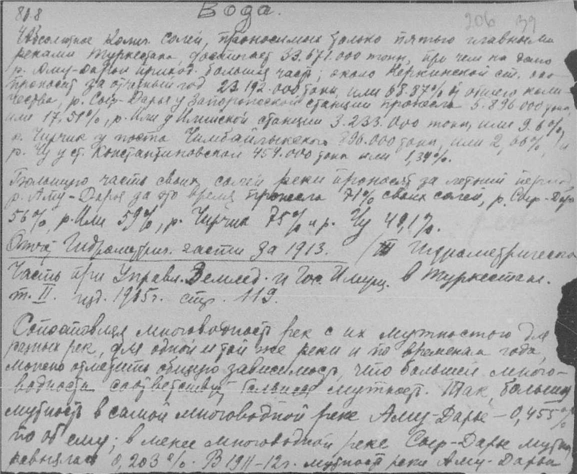 808 Вода. 206 39
Абсолютное колич. солей, проносимых только пятью главными
реками Туркестана, достигает 33.671.000 тонн, при чем на долю
р. Аму-Дарьи приход. большая часть; около Керкинской ст. она
проносит за отчетный год 23.192.000 тонн, или 68.87% общего коли
чества; р. Сыр-Дарья у Запорожской станции пронесла 5.896.000 тонн,
или 17,51%, р. Или у Илийской станции 3.233.000 тонн, или 9.6%,
р. Чирчик у поста Чимбайлыкского 896.000 тонн, или 2,66%, и
р. Чу у ст. Константиновской 454.000 тонн или 1,34%.
Большую часть своих солей реки проносят за летний период
р. Аму-Дарья за это время пронесла 71% своих солей, р. Сыр-Дарья
56%, р. Или 59%, р. Чирчик 75% и р. Чу 49,1%.
Отч. Гидрометрич. части за 1913. / Гидрометрическая
Часть при Управл. Землед. и Гос. Имущ. в Туркестане.
т. II. изд. 1915г. стр. 119.
Сопоставляя многоводность рек с их мутностью для
разных рек, для одной и той же реки и по временам года,
можно отметить общую зависимость, что большей много-
водности соответствует большая мутность. Так большая
мутность в самой многоводной реке Аму-Дарье – 0,455%
по объему; в менее многоводной реке Сыр-Дарье мутность
0,203%. В 1911-12г. мутность реки Аму-Дарьи